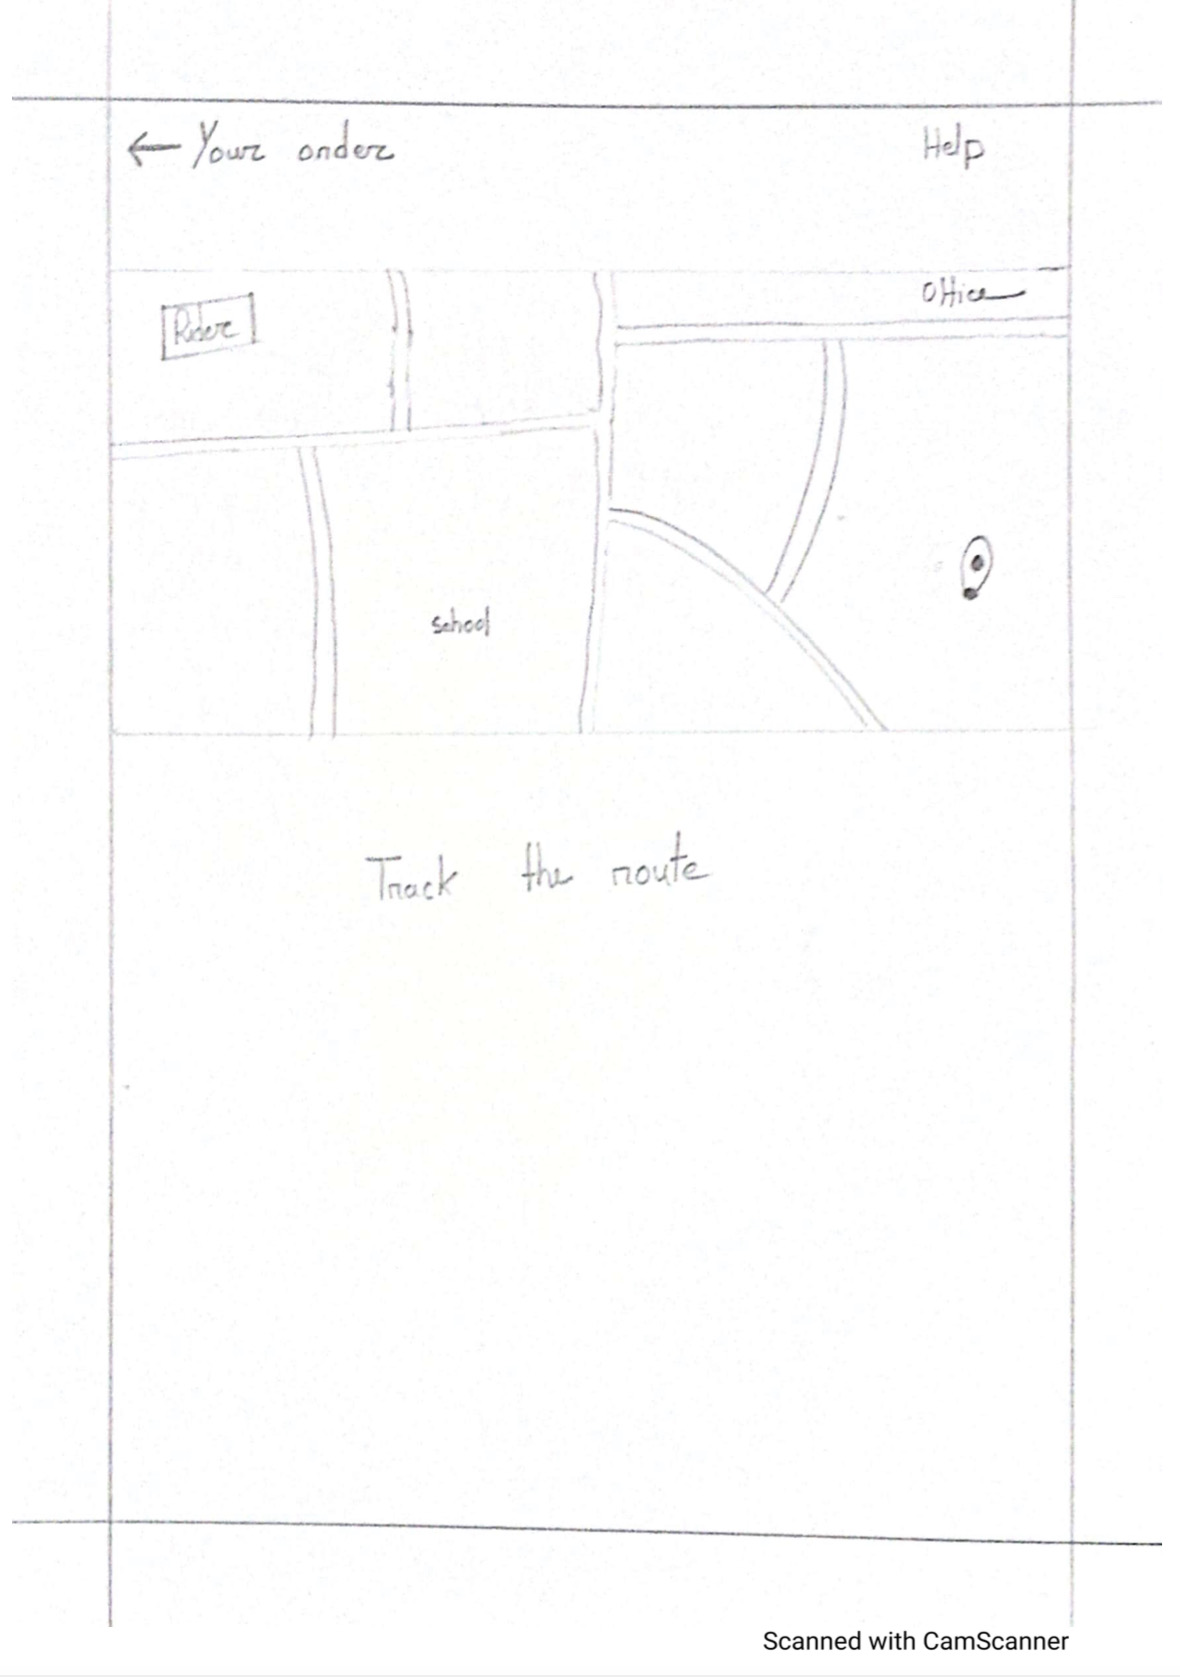 ← Your order
Help
Rider
Office
School
Track the route
Scanned with CamScanner